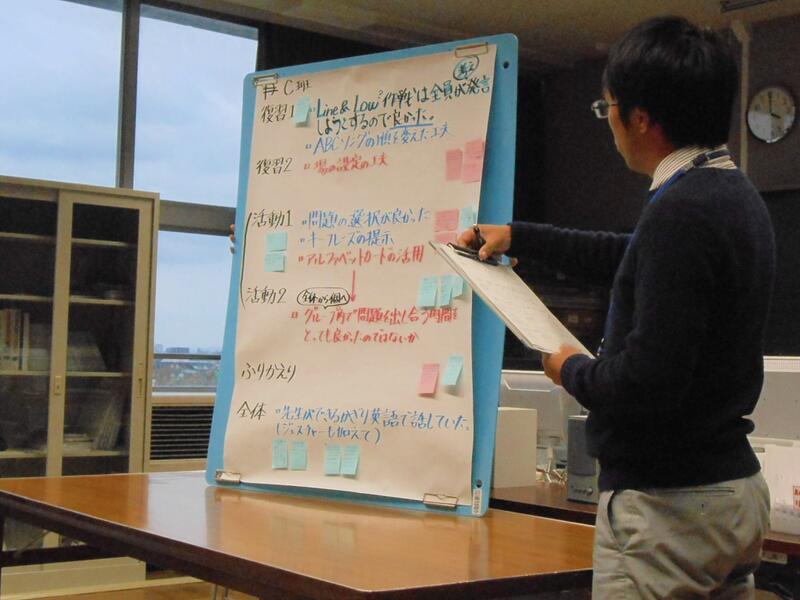 C班
復習1 "Line & Low"作戦は全員が発言
しようとするので良かった。
ABCソングの順を変えた工夫
復習2 場の設定の工夫
活動1 問題の選択が良かった
キーフレーズの提示
アルファベットカードの活用
活動2 全体から個へ
グループ内で問題を出し合う時間を
とっても良かったのではないか
ふりかえり
全体 先生ができるかぎり英語で話していた。
(ジェスチャーも加えて)